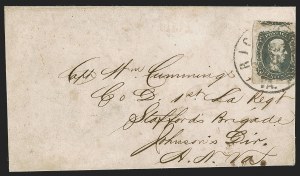 RIC
VA.
Capt Wm Cummings
Co D 1st La Regt
Staffords Brigade
Johnson's Div.
A. N. Va.